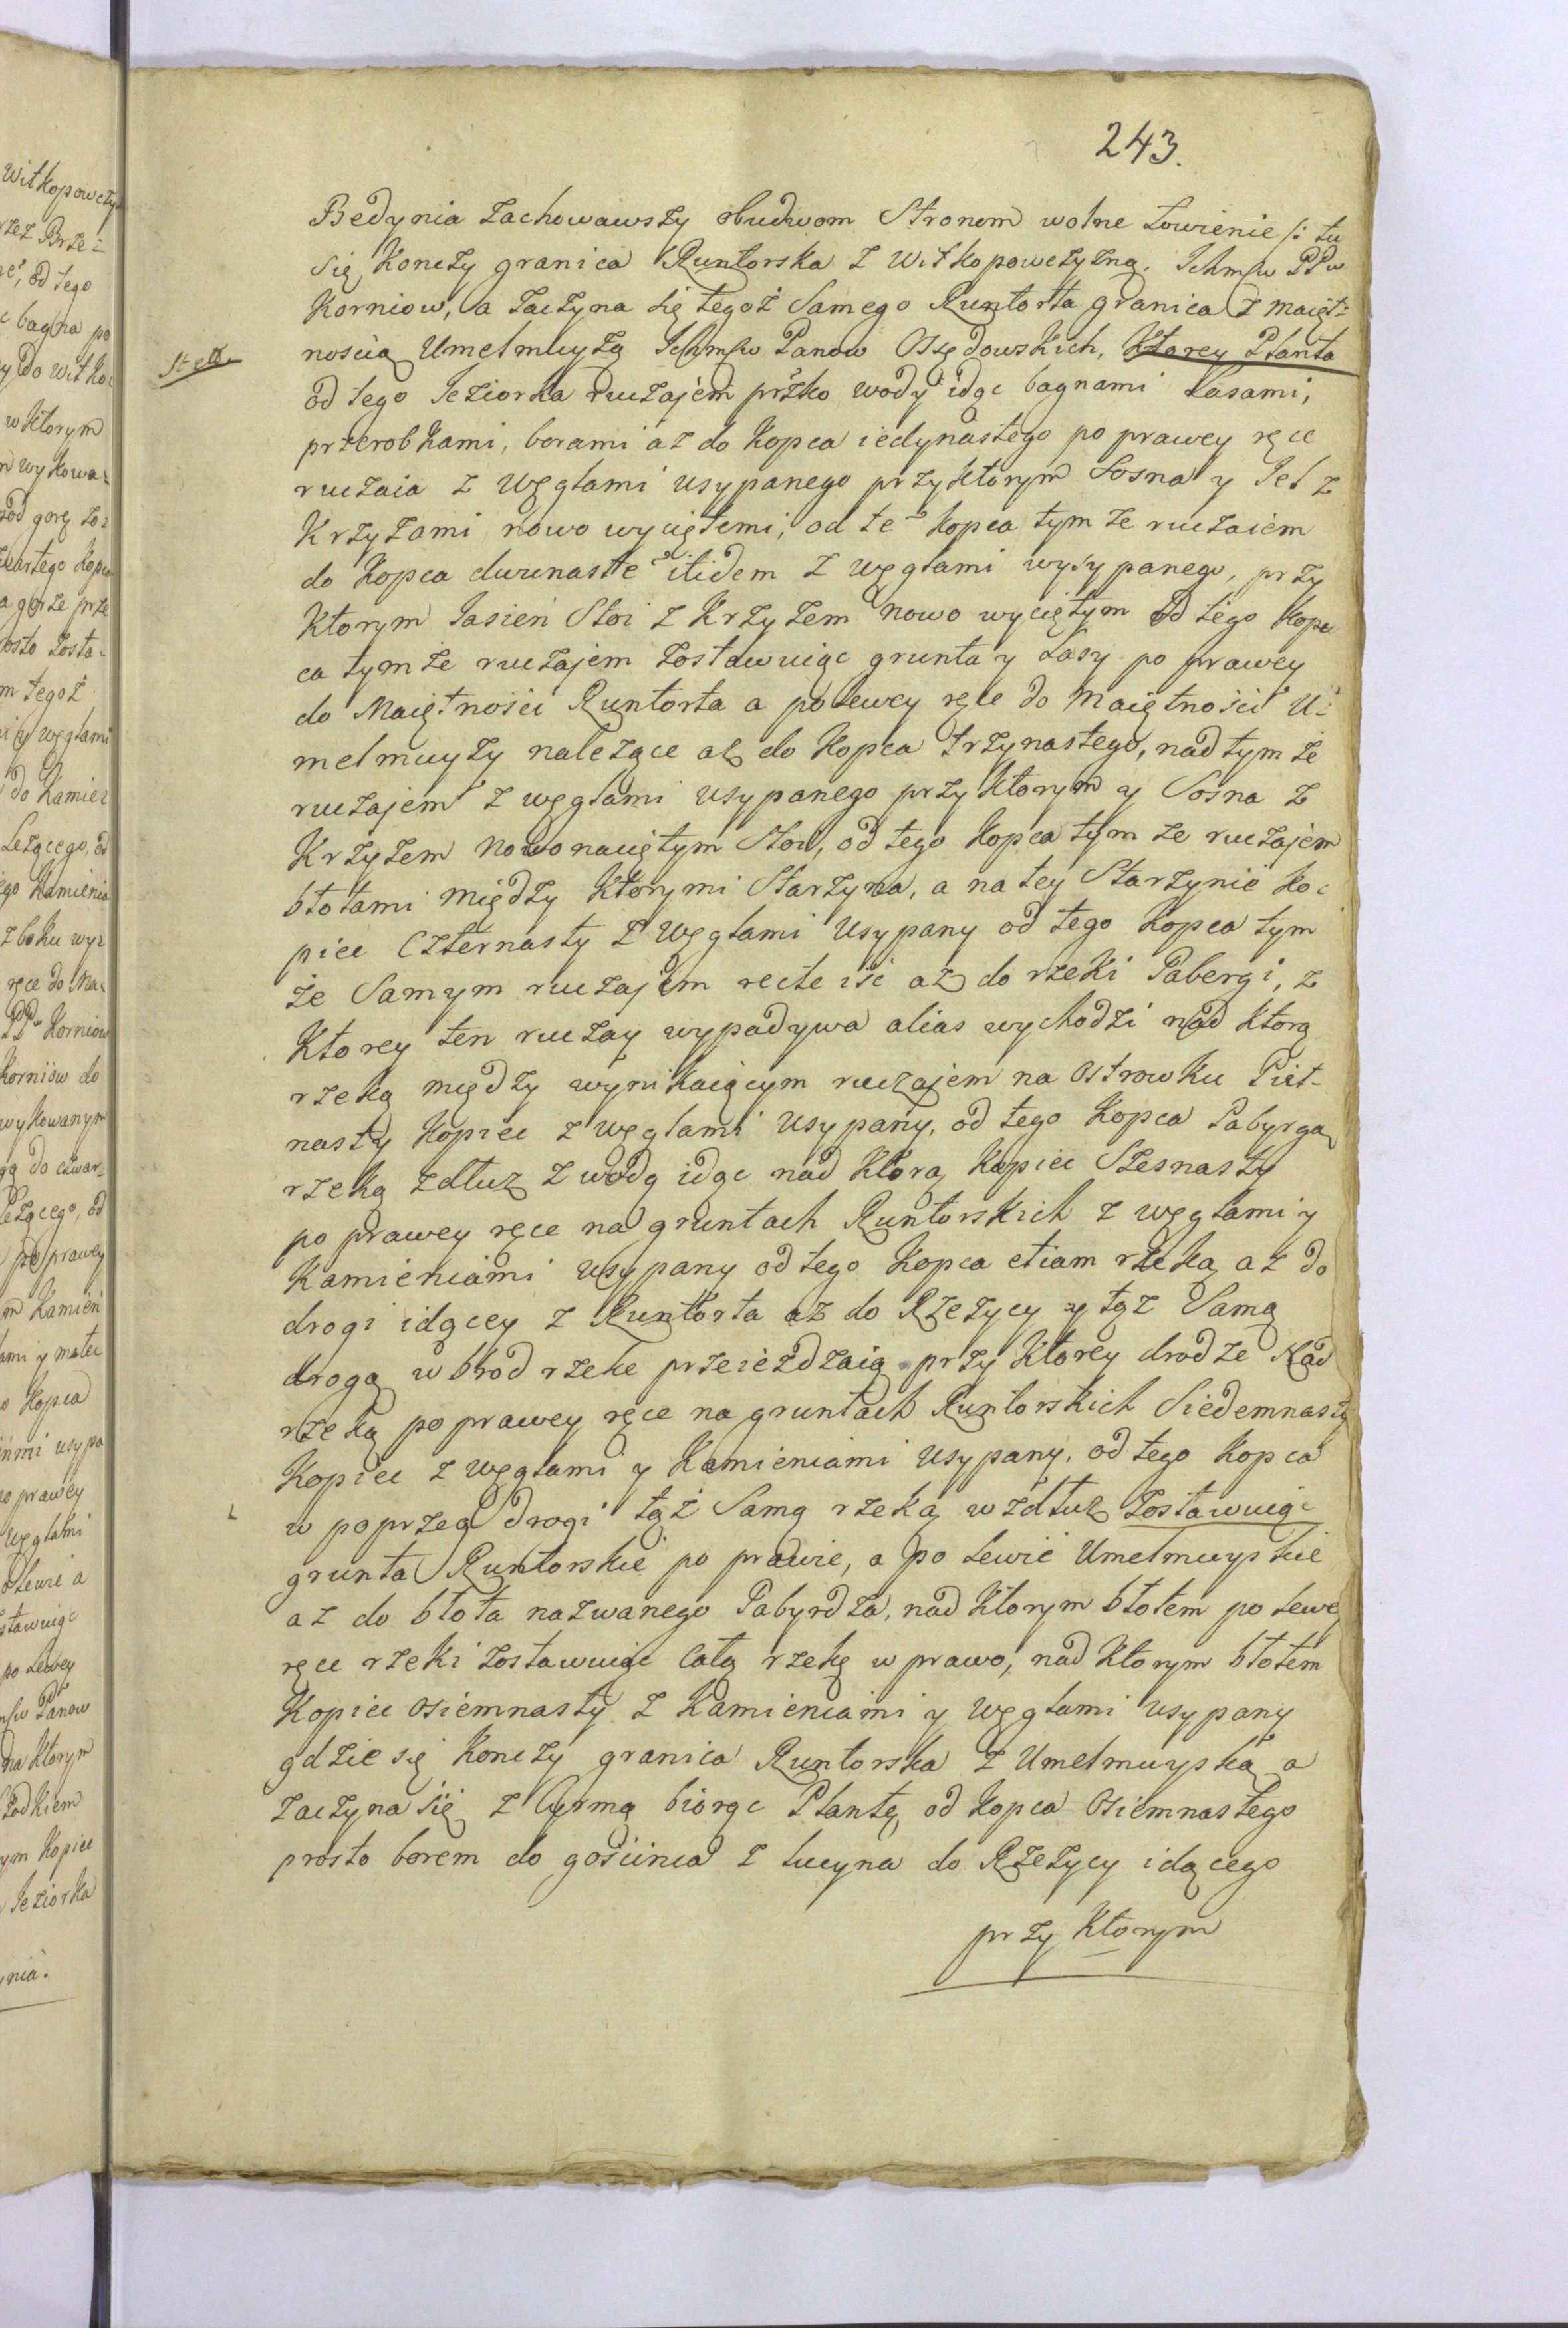 243.
Bedynia zachowawszy obudwom Stronom wolne Łowienie /: tu
się Konczy granica Runtorska z Witkopowczyzną, Ichmśw PPw
Korniow, a zaczyna się tegoż Samego Runtorta granica z maięt:
nością Umelmuyżą Ichmśw Panow Oszędowskich, Ktorey Planta
od tego Jeziorka ruczajem przko wody idąc bagnami Lasami,
przerobkami, borami aż do Kopca iedynastego po prawey ręce
ruczaia z węgłami usypanego przyktorym Sosna y Jel z
Krzyżami nowo wyciętemi, od te° kopca tym ze ruczaiem
do Kopca dwunaste° itidem z węgłami wysypanego, przy
Ktorym Jasień Stoi z Krzyżem nowo wyciętym od tego Kop
ca tymże ruczajem zostawuiąc grunta y Lasy po prawey
do Maiętności Runtorta a polewey ręce do Maiętności U:
melmuyży należące aż do Kopca trzynastego, nad tym że
ruczajem z węgłami usypanego przy Ktorym y Sosna z
Krzyżem nowonaciętym Stoi, od tego Kopca tym ze ruczajem
błotami między Ktorymi Starzyna, a na tey Starzynie Ko:
piec Czternasty z węgłami usypany od tego Kopca tym
że Samym ruczajem recte iść aż do rzeki Pabergi, z
Ktorey ten ruczay wypadywa alias wychodzi nad Ktorą
rzeką między wynikaiącym ruczajem na Ostrowku Piet-
nasty Kopiec z węgłami usypany, od tego Kopca Pabyrgą
rzeką zdłuż z wodą idąc nad Ktorą Kopiec Szesnasty
po prawey ręce na gruntach Runtorskich z węgłami y
Kamieniami usypany od tego Kopca etiam rzeką aż do
drogi idącey z Runtorta aż do Rzeżycy y tąż Samą
drogą w brod rzeke przeieżdzaią przy Ktorey drodze Nad
rzeką po prawey ręce na gruntach Runtorskich Siedemnasty
Kopiec z węgłami y Kamieniami usypany, od tego Kopca
w poprzeg drogi tąż Samą rzeką wzdłuż zostawuiąc
grunta Runtorskie po prawie, a po Lewie Umelmuyskie
aż do błota nazwanego Pabyrdza, nad Ktorym błotem po Lewey
ręce rzeki zostawuiąc całą rzekę w prawo, nad Ktorym błotem
Kopiec osiemnasty z Kamieniami y węgłami usypany
gdzie się Konczy granica Runtorska z Umelmuyską a
zaczyna się z Cyrmą biorąc Plantę od Kopca Osiemnastego
prosto borem do gościnca z Lucyna do Rzeżycy idącego
przy Ktorym